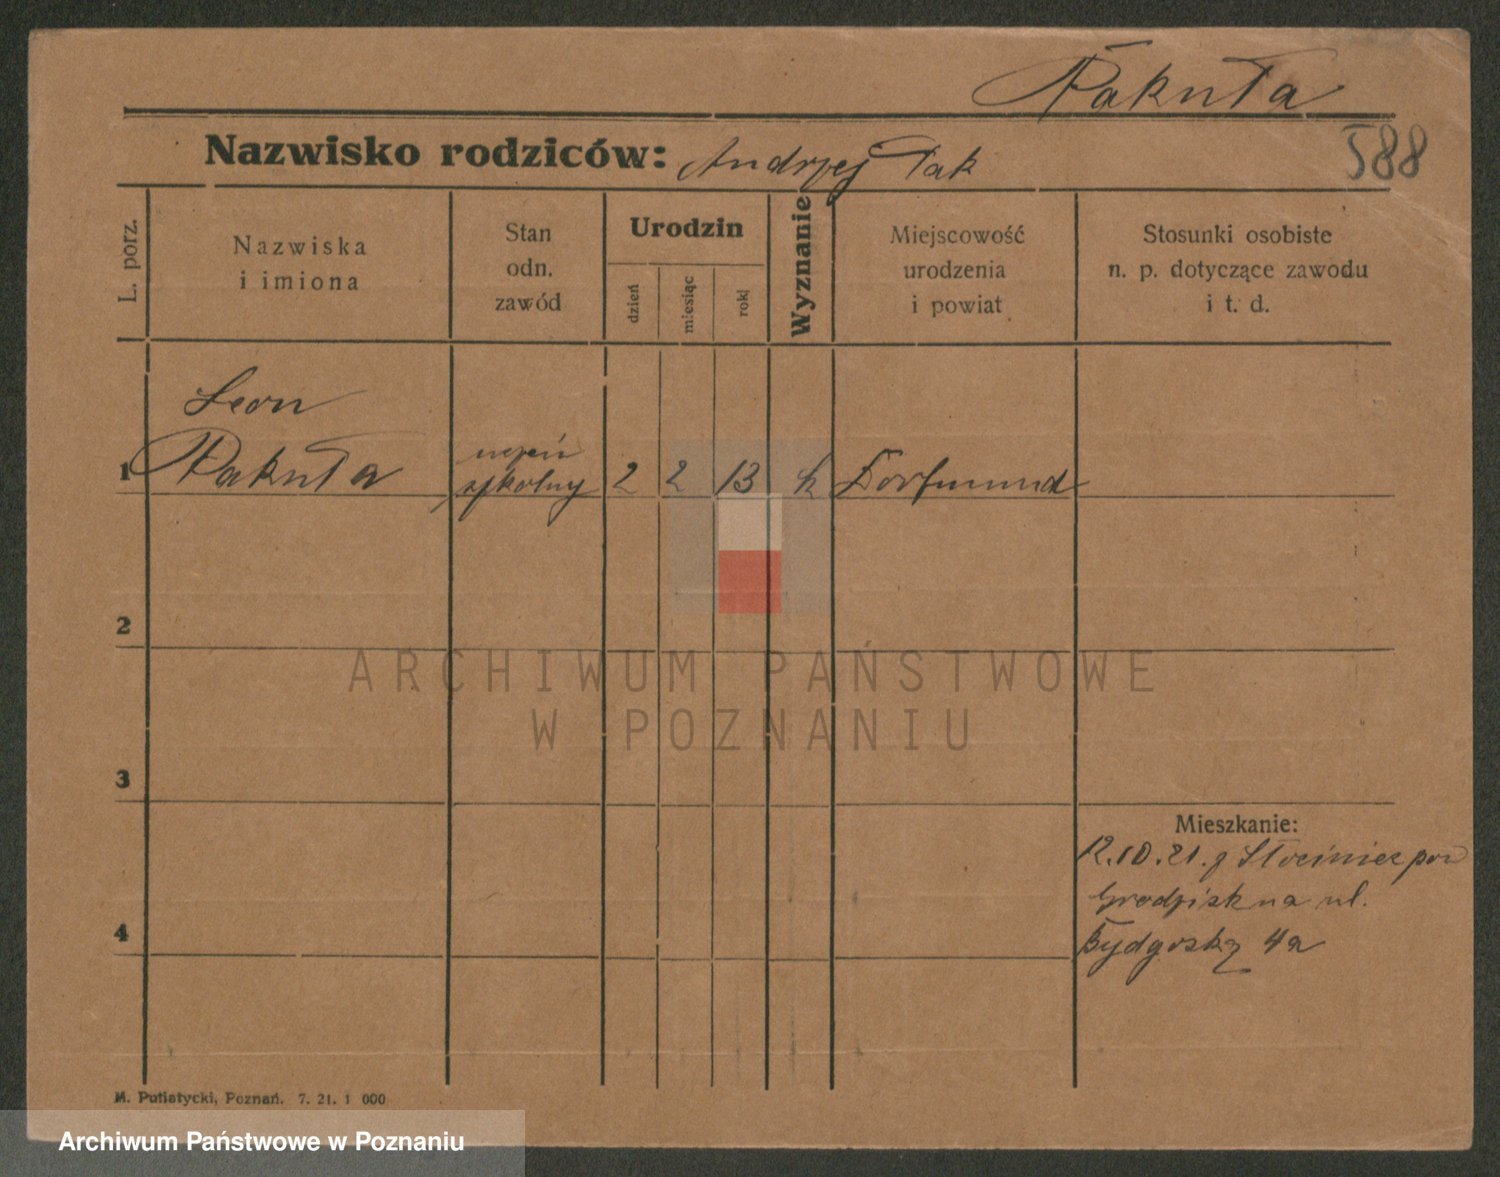 Pakuła
588
Nazwisko rodziców: Andrzej Pak
L. porz.
Nazwiska
i imiona
Stan
odn.
zawód
Urodzin
dzień
miesiąc
rok
Wyznanie
Miejscowość
urodzenia
i powiat
Stosunki osobiste
n. p. dotyczące zawodu
i t. d.
Leon
1 Pakuła
uczeń
szkolny
2 2 13 k Dortmund
2
3
4
Mieszkanie:
12.10.21. z pow
Grodzisk na ul.
Bydgoską 4a
M. Putiatycki, Poznań. 7. 21. 1 000
ARCHIWUM PAŃSTWOWE
W POZNANIU
Archiwum Państwowe w Poznaniu